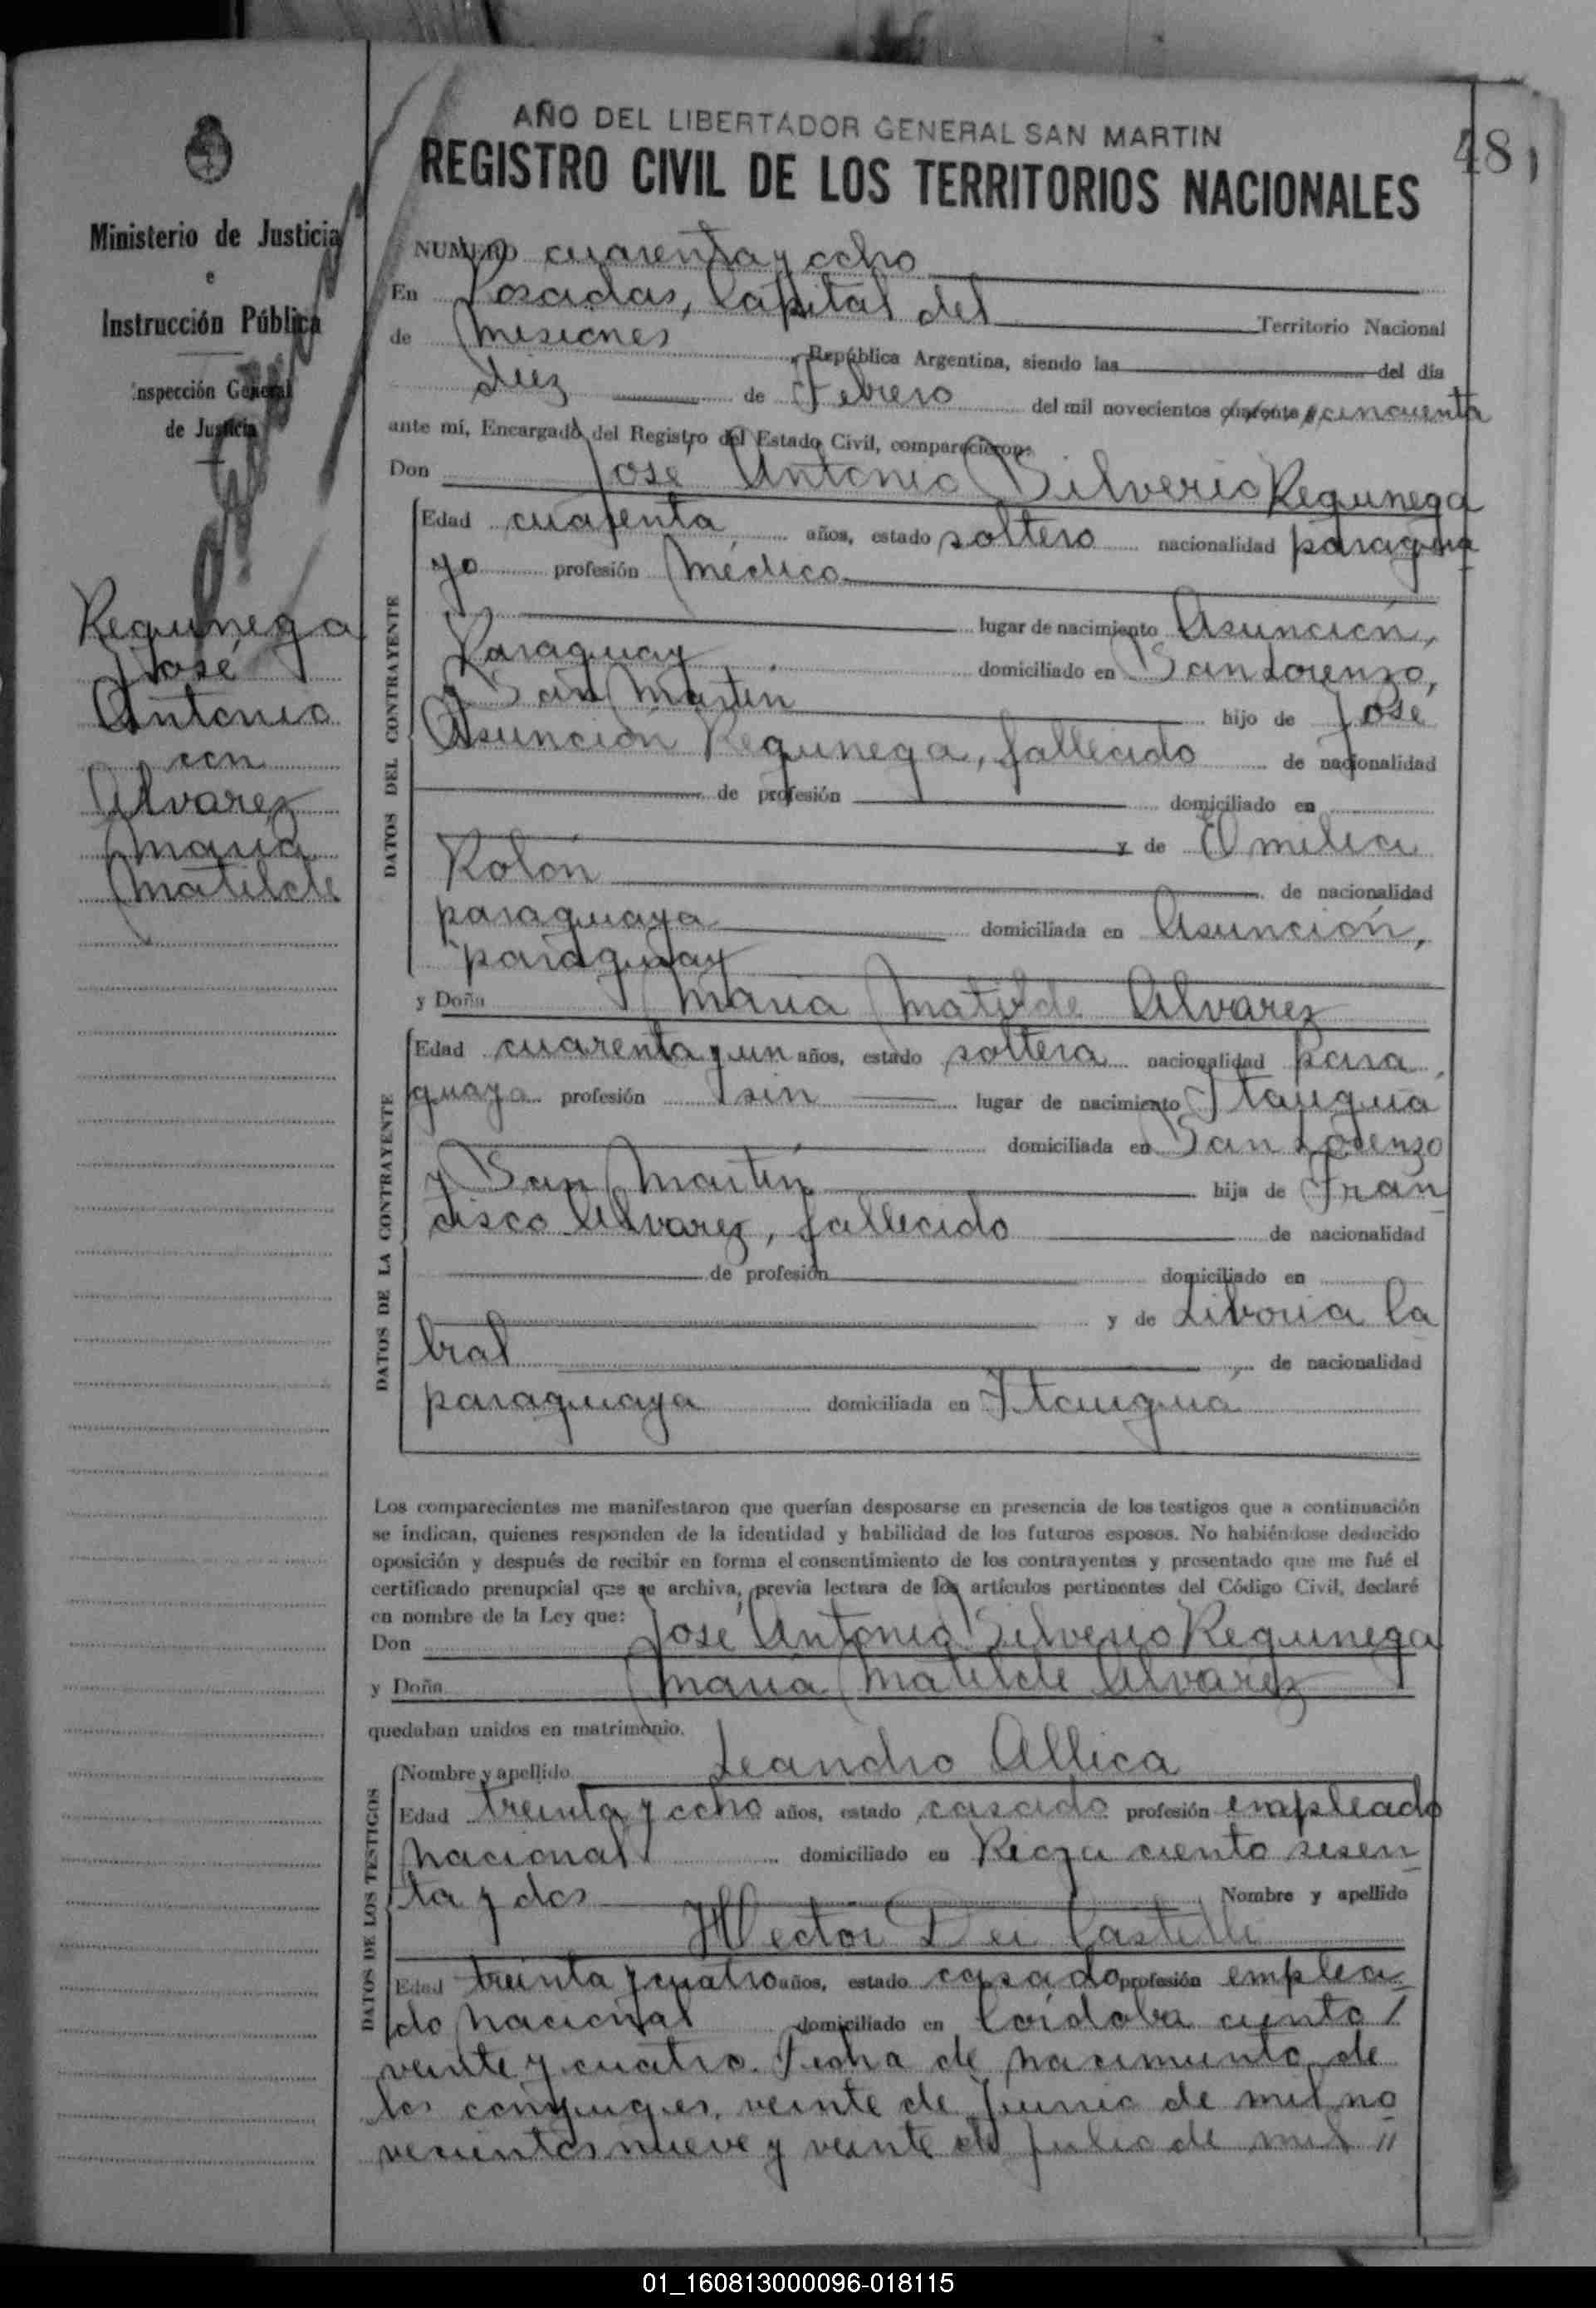 AÑO DEL LIBERTADOR GENERAL SAN MARTIN
REGISTRO CIVIL DE LOS TERRITORIOS NACIONALES
48
Ministerio de Justicia
e
Instrucción Pública
Inspección General
de Justicia
Requnega
José
Antonio
con
Alvarez
Maria
Matilde
NUMERO cuarenta y ocho
En Posadas, Capital del Territorio Nacional
de Misiones, República Argentina, siendo las del día
diez de Febrero del mil novecientos cuarenta y cincuenta
ante mí, Encargado del Registro del Estado Civil, comparecieron:
Don José Antonio Silverio Requnega
DATOS DEL CONTRAYENTE
Edad cuarenta años, estado soltero nacionalidad paragua
yo profesión Médico
lugar de nacimiento Asunción,
Paraguay domiciliado en San Lorenzo,
y San Martín hijo de José
Asunción Requnega, fallecido de nacionalidad
de profesión domiciliado en
y de Emilia
Rolón de nacionalidad
paraguaya domiciliada en Asunción,
paraguay
y Doña Maria Matilde Alvarez
DATOS DE LA CONTRAYENTE
Edad cuarenta y un años, estado soltera nacionalidad para
guaya profesión sin lugar de nacimiento Itauguá
domiciliada en San Lorenzo
y San Martín hija de Fran
cisco Alvarez, fallecido de nacionalidad
de profesión domiciliado en
y de Liboria Ca
bral de nacionalidad
paraguaya domiciliada en Itauguá
Los comparecientes me manifestaron que querían desposarse en presencia de los testigos que a continuación
se indican, quienes responden de la identidad y habilidad de los futuros esposos. No habiéndose deducido
oposición y después de recibir en forma el consentimiento de los contrayentes y presentado que me fué el
certificado prenupcial que se archiva, previa lectura de los artículos pertinentes del Código Civil, declaré
en nombre de la Ley que:
Don José Antonio Silverio Requnega
y Doña Maria Matilde Alvarez
quedaban unidos en matrimonio.
DATOS DE LOS TESTIGOS
Nombre y apellido Leandro Allica
Edad treinta y ocho años, estado casado profesión empleado
nacional domiciliado en Rioja ciento sesen
ta y dos Nombre y apellido
Hector Dei Castelli
Edad treinta y cuatro años, estado casado profesión emplea
do nacional domiciliado en Córdoba ciento /
veinte y cuatro. Fecha de nacimiento de
los conyuges, veinte de Junio de mil no
vecientos nueve y veinte de julio de mil //
01_160813000096-018115